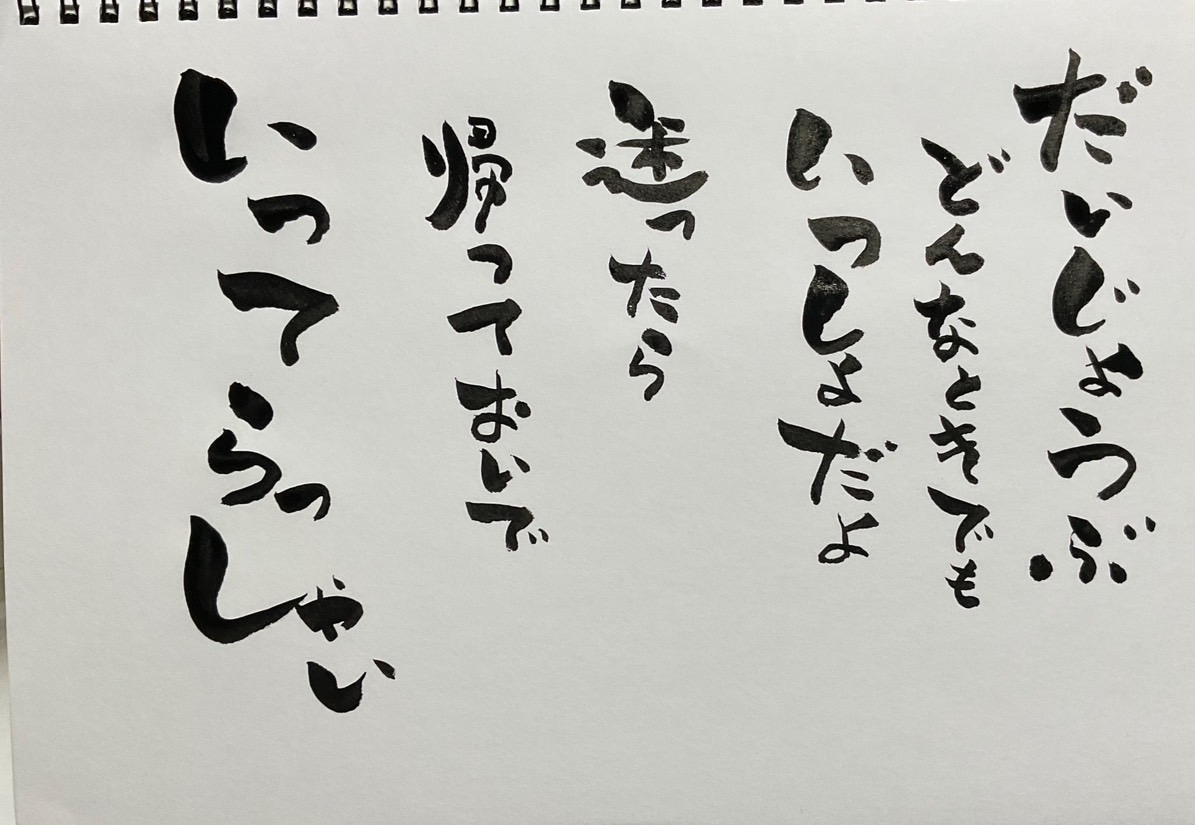 だいじょうぶ
どんなときでも
いつしよだよ
迷ったら
帰っておいで
いってらっしゃい